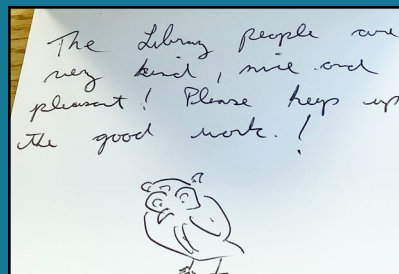 The Library people are
very kind, nice and
pleasant! Please keep up
the good work.!